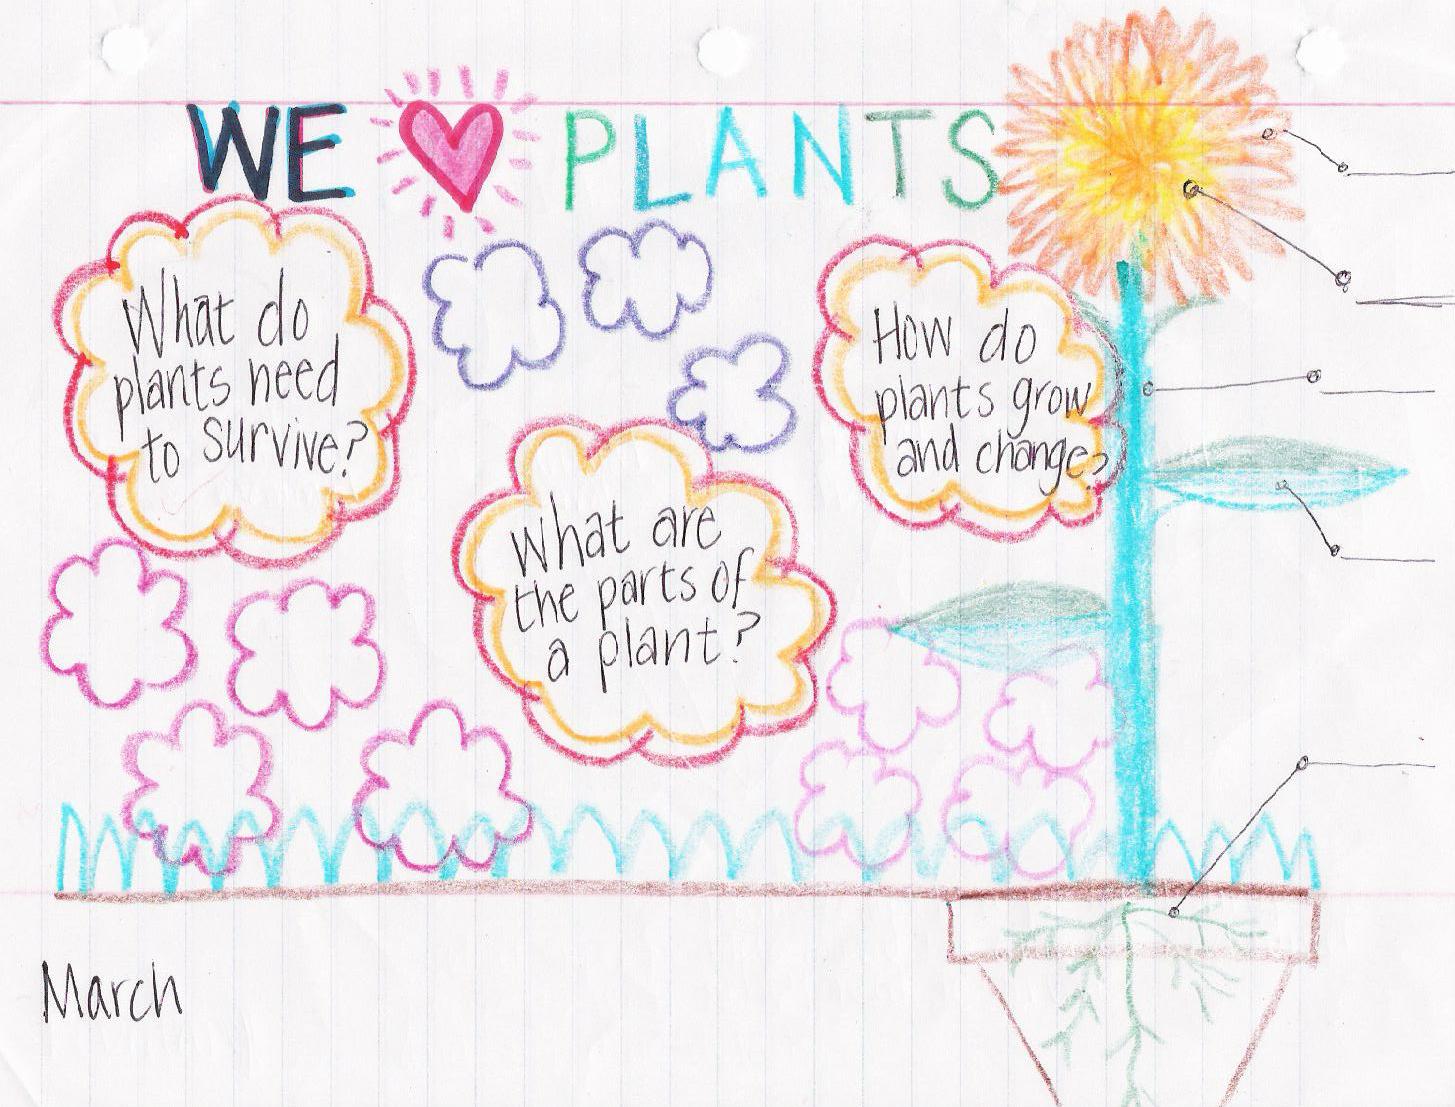 WE PLANTS
What do
plants need
to survive?
How do
plants grow
and change?
What are
the parts of
a plant?
March